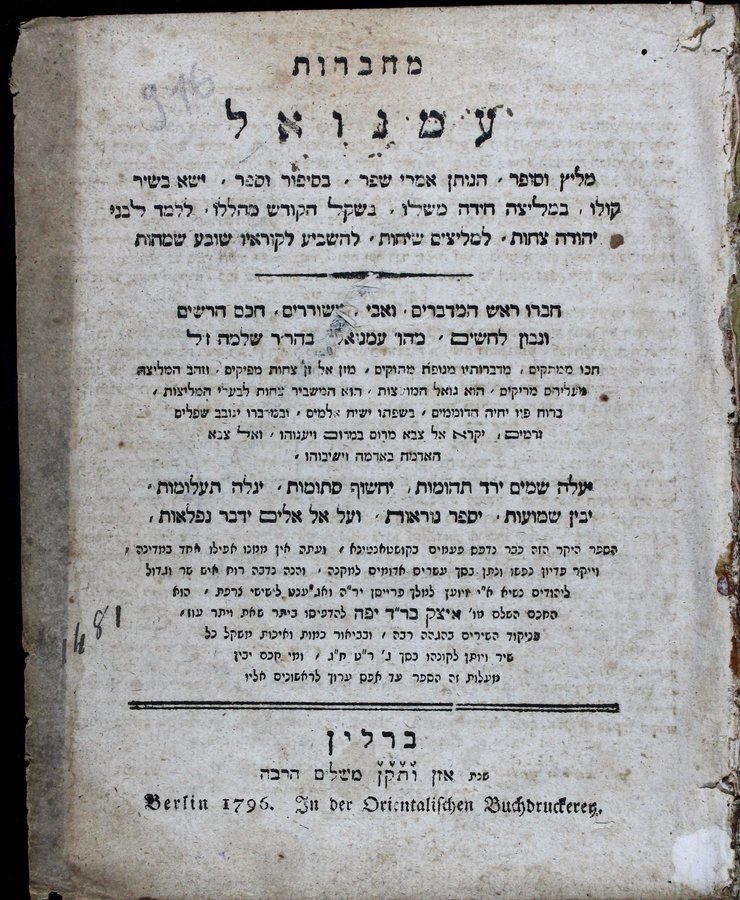 מחברות
עמנואל
מליץ וסופר, הנותן אמרי שפר, בסיפור וספר, ישא בשיר
קולו, במליצה חידה משלו, בשקל הקודש מהללו, ללמד לבני
יהודה צחות, למליצים שיחות, להשביע לקוראיו שובע שמחות
חברו ראש המדברים, ואבי המשוררים, חכם חרשים
ונבון לחשים, מהו' עמנואל בהר"ר שלמה ז"ל
חכו ממתקים, מדברותיו מנופת מתוקים, מזן אל זן צחות מפיקים, וזהב המליצה
מעליהם מריקים, הוא גואל המוצות, הוא המשביר צחות לבעלי המליצות,
ברוח פיו יחיה הדוממים, בשפתו ישיח אלמים, ובמדברו ינובב שפלים
ורמים, יקרא אל צבא מרום במרום ויענוהו, ואל צבא
האדמה באדמה וישיבוהו,
יעלה שמים ירד תהומות, יחשוף סתומות, יגלה תעלומות,
יבין שמועות, יספר נוראות, ועל אל אלים ידבר נפלאות,
הספר היקר הזה כבר נדפס פעמים בקושטאנטינא, ועתה אין ממנו אפילו אחד במדינה,
וייקר פדיון נפשו ונתן בסך עשרים אדומים למקנה, והנה נדבה רוח איש שר וגדול
ליהודים נשיא א"י יועץ למלך פרייסן יר"ה ואגענט לישישי צרפת, הוא
החכם השלם מו' איצק בר"ד יפה להדפיסו ביתר שאת ויתר עוז,
בניקוד השירים בהגהה רבה, ובביאור כמות ואיכות משקל כל
שיר ויותן לקונהו בסך ג' ר"ט ח"ג, ומי חכם יבין
מעלות זה הספר עד אפס ערוך לראשונים אליו
ברלין
שנת אזן ותקן משלים הרבה
Berlin 1796. In der Orientalischen Buchdruckerey.
946
1481